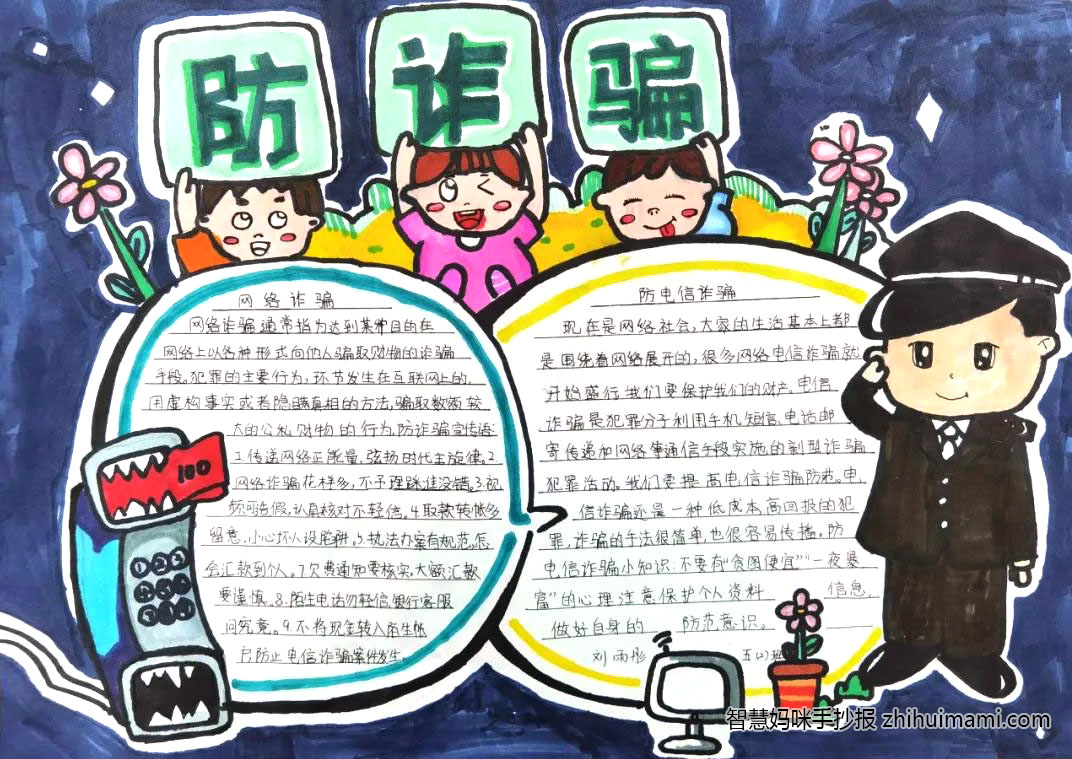 防诈骗
网络诈骗
网络诈骗通常指为达到某种目的在
网络上以各种形式向他人骗取财物的诈骗
手段。犯罪的主要行为,环节发生在互联网上的,
用虚构事实或者隐瞒真相的方法,骗取数额较
大的公私财物的行为,防诈骗宣传语
1.传递网络正能量,弦扬时代主旋律。2.
网络诈骗花样多,不予理睬准没错。3.视
频可告假,认真核对不轻信。4.取款转帐多
留意,小心坏人设陷阱。5.执法办案有规范,怎
会汇款到个人。7.欠费通知要核实,大额汇款
要谨慎。8.陌生电话勿轻信,银行客服
问究竟。9.不将现金转入陌生帐
户防止电信诈骗案件发生。
100
1 2 3
防电信诈骗
现在是网络社会,大家的生活基本上都
是围绕着网络展开的,很多网络电信诈骗就
开始盛行,我们要保护我们的财产,电信
诈骗是犯罪分子利用手机,短信,电话,邮
寄传递和网络等通信手段实施的新型诈骗
犯罪活动。我们要提高电信诈骗防范。电
信诈骗还是一种低成本,高回报的犯
罪,诈骗的手法很简单,也很容易传播。防
电信诈骗小知识:不要有“贪图便宜”“一夜暴
富”的心理,注意保护个人资料 信息,
做好自身的 防范意识。
刘雨彤 五(2)班
智慧妈咪手抄报 zhihuimami.com